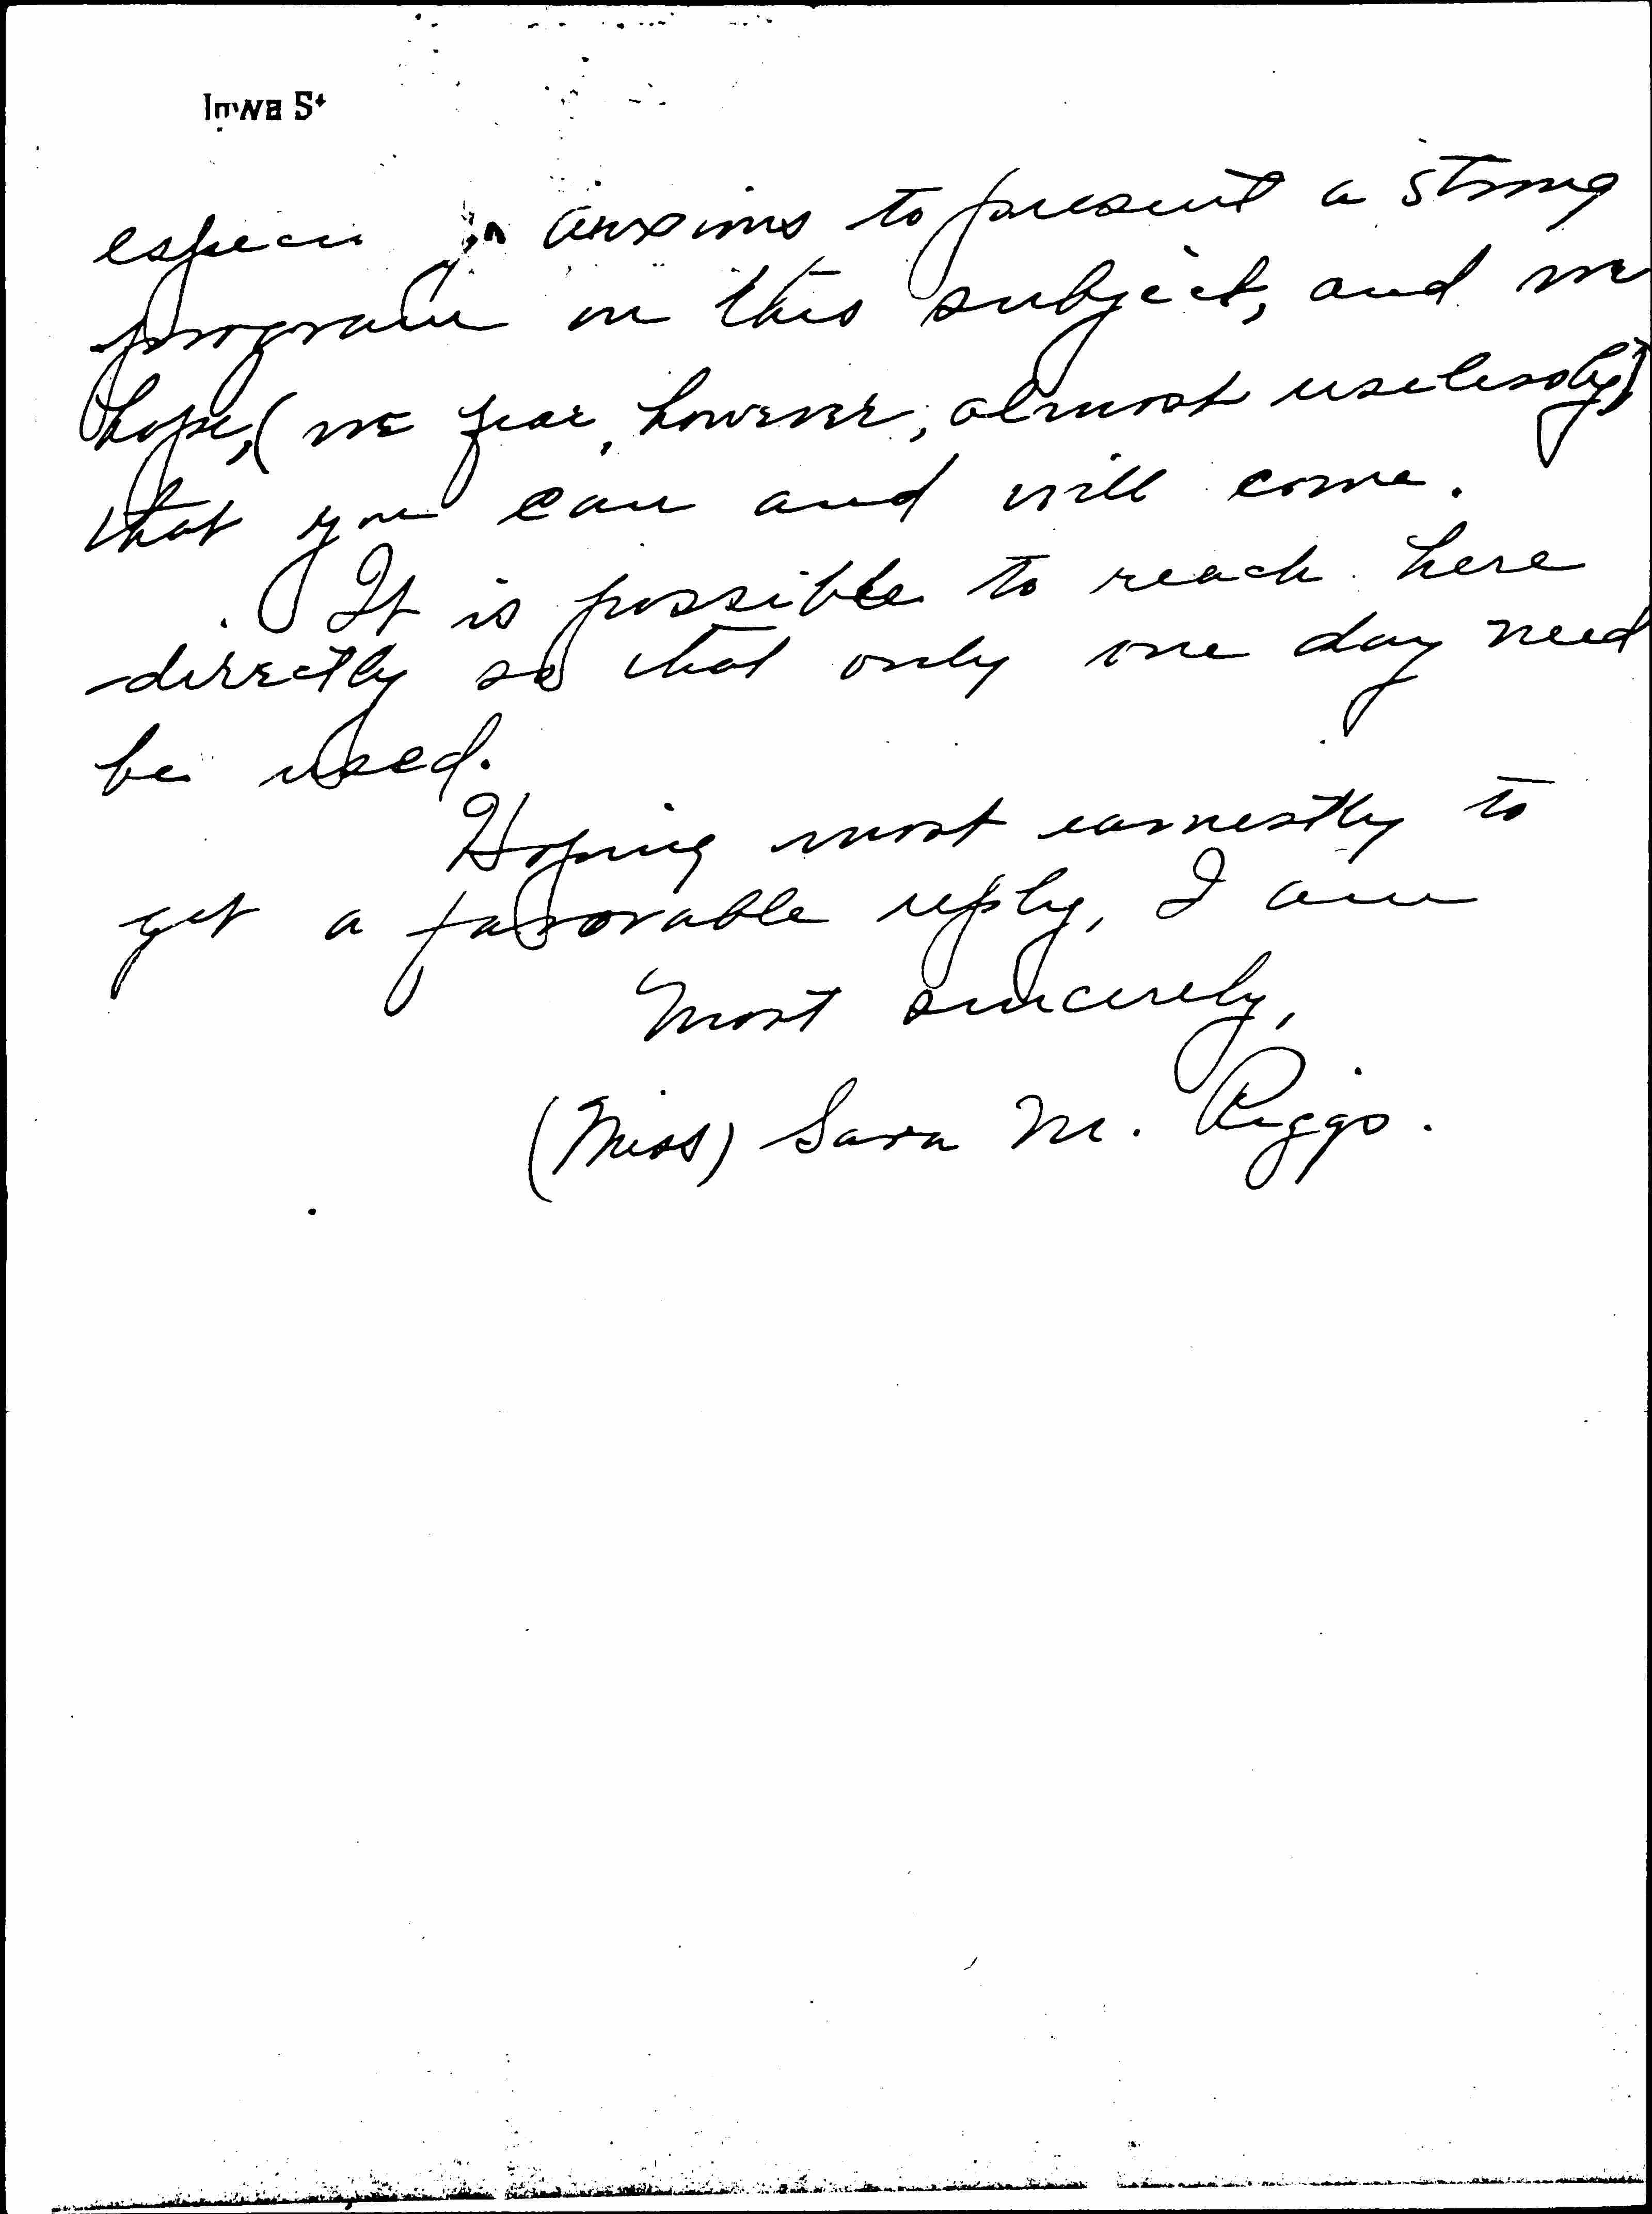 Iowa St
especi anxious to present a strong
program on this subject, and we
hope, (we fear, however, almost uselessly)
that you can and will come.
It is possible to reach here
directly so that only one day need
be used.
Hoping most earnestly to
get a favorable reply, I am
Most sincerely,
(Miss) Sara M. Riggs.